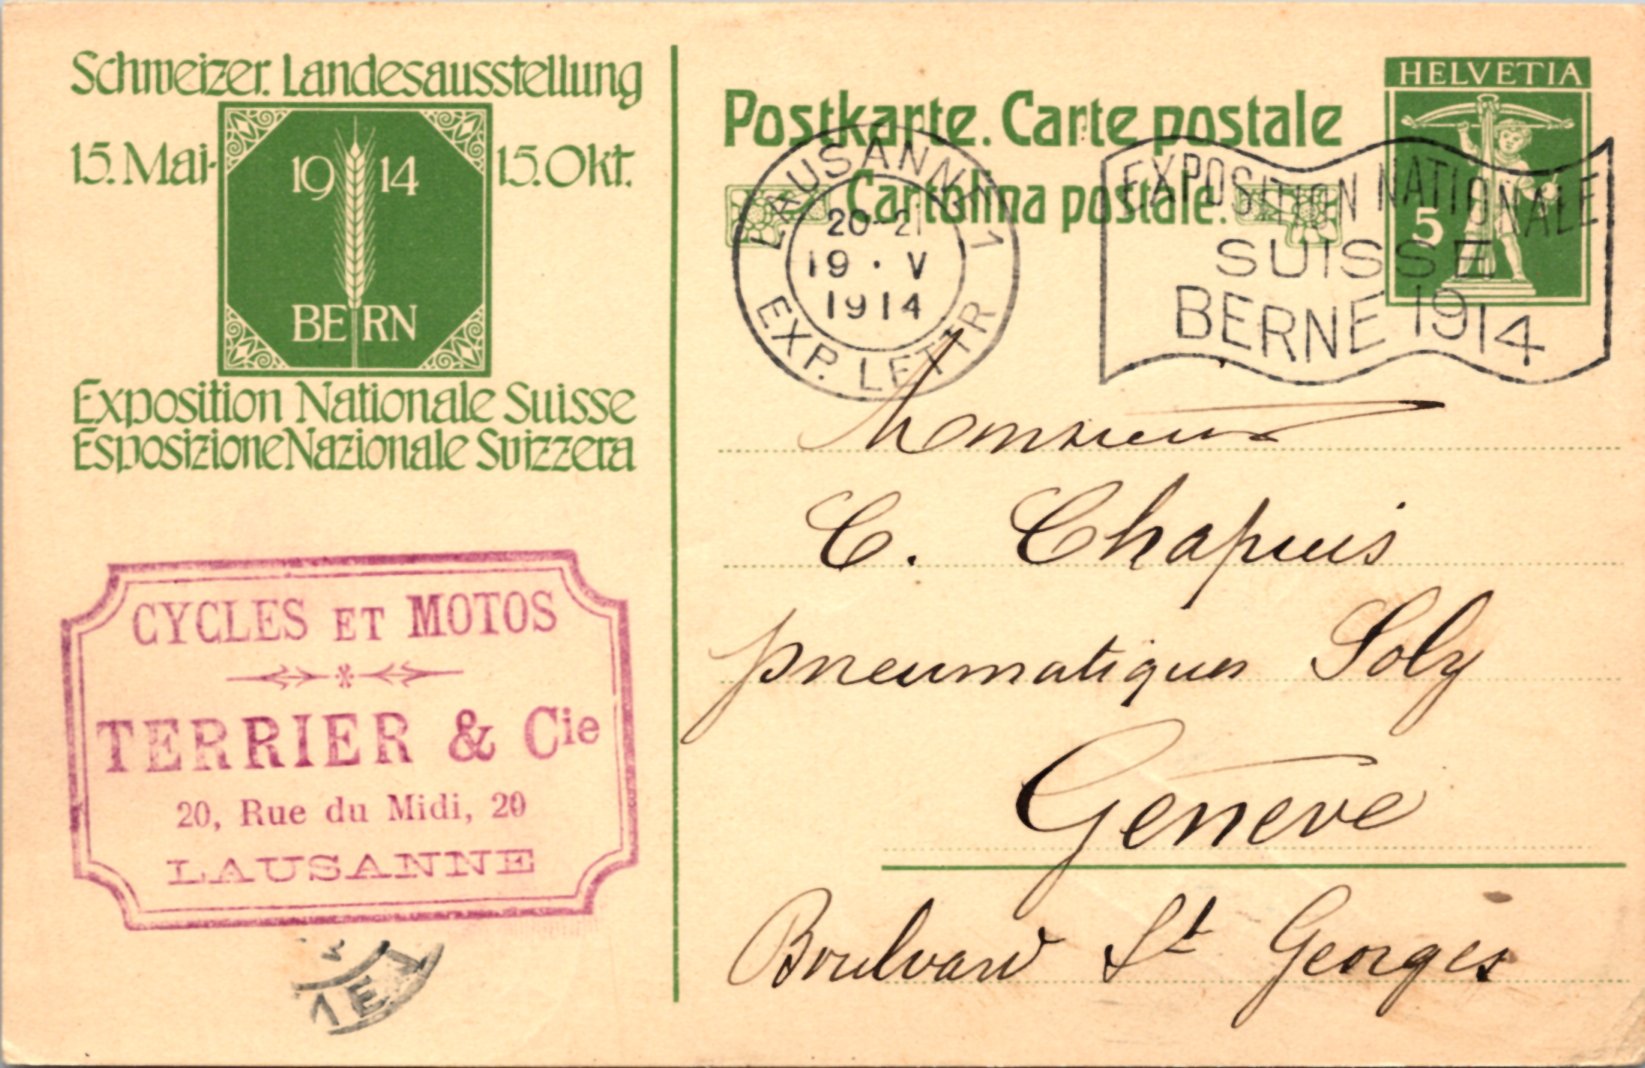 Schweizer. Landesausstellung
15. Mai-15. Okt.
1914
BERN
Exposition Nationale Suisse
Esposizione Nazionale Svizzera
CYCLES ET MOTOS
TERRIER & Cie
20, Rue du Midi, 20
LAUSANNE
Postkarte. Carte postale
Cartolina postale.
HELVETIA
5
LAUSANNE 1
20-21
19 · V
1914
EXP. LETTR
EXPOSITION NATIONALE
SUISSE
BERNE 1914
Monsieur
C. Chapuis
pneumatiques Soly
Genève
Boulvard St Georges